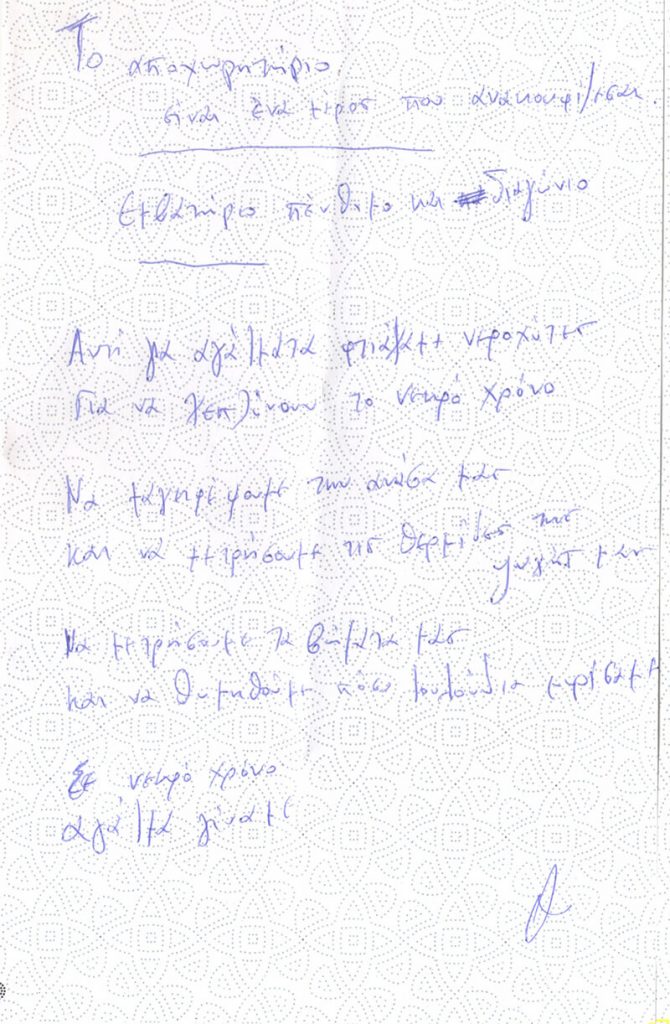 Το αποχωρητήριο
είναι ένα μέρος που ανακουφίζεσαι.
Εμβατήριο πένθιμο και διαγώνιο
Αντί για αγάλματα φτιάξαμε νεροχύτες
Για να ξεπλύνουν το νεκρό χρόνο
Να μαγειρέψουμε την ανάσα μας
και να μετρήσουμε τις θερμίδες της
ψυχής μας
Να μετρήσουμε τα βήματά μας
και να θυμηθούμε πόσα λουλούδια μυρίσαμε
Σε νεκρό χρόνο
αγάλμα γίναμε